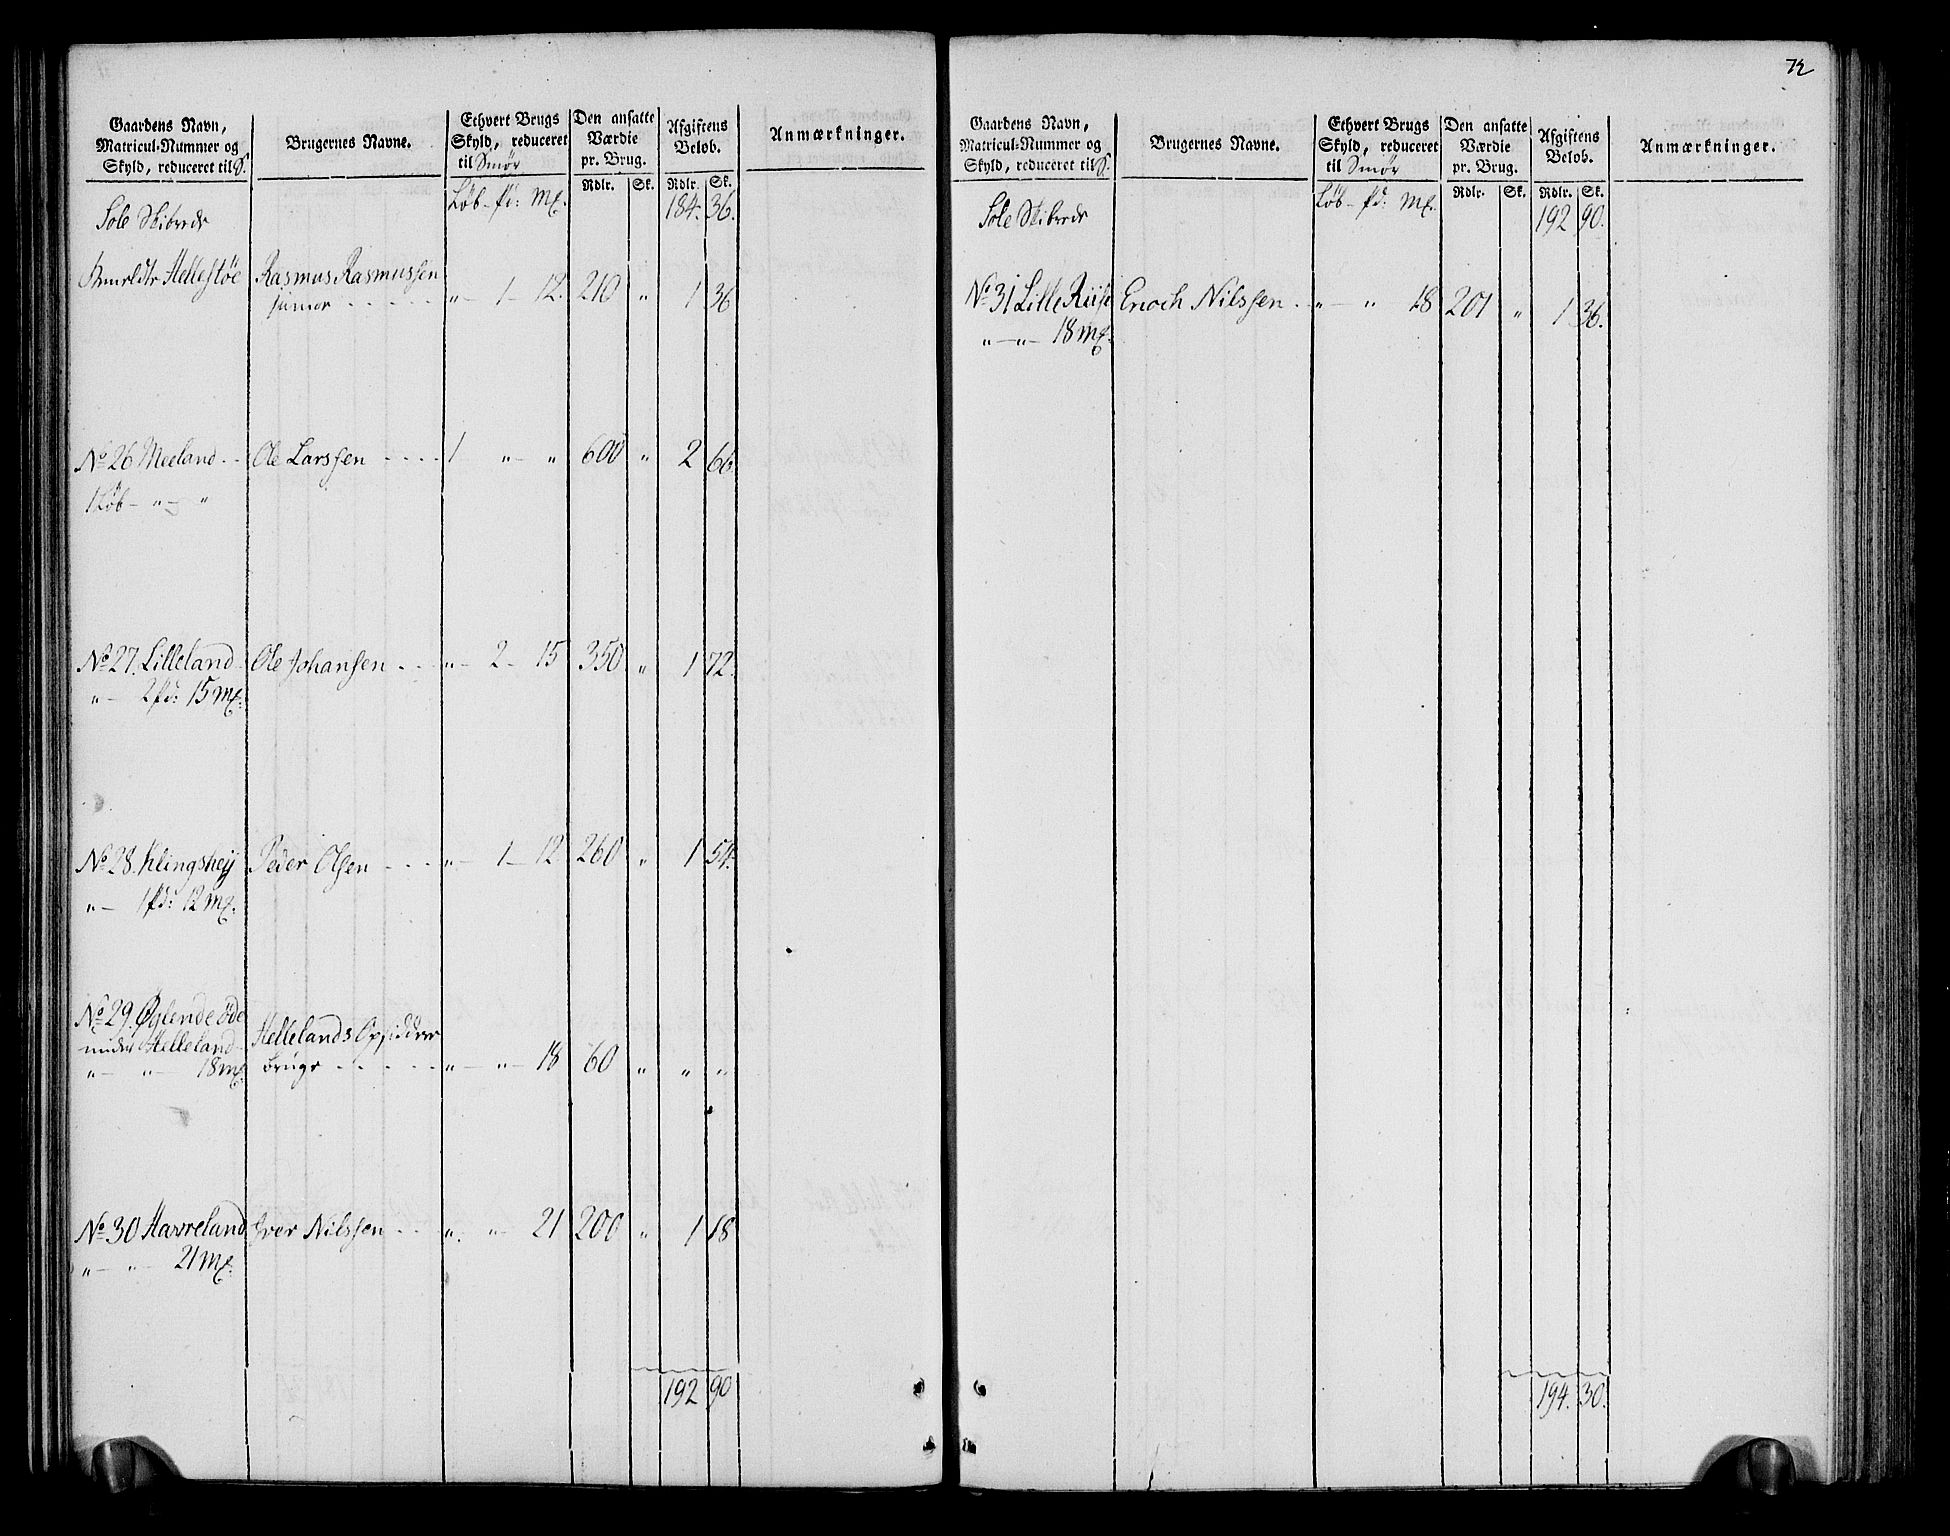 Gaardens Navn, Matricul-Nummer og Skyld, reduceret til S. | Brugernes Navne. | Ethvert Brugs Skyld, reduceret til Smør | Den ansatte Værdie pr. Brug. | Afgiftens Beløb. | Anmærkninger.
Rdlr. Sk. Rdlr. Sk.
Løb - pd: Mk. 184. 36.
Sole Skibrede
Hellestøe Rasmus Rasmussen
junior - - - - - „ - 1 - 12. 210 „ 1 36
No 26 Meeland - - Ole Larssen - - - - 1 „ - „ 600 „ 2 66
1 Løb - „ - „
No 27. Lilleland - Ole Johansen - - - „ - 2 - 15 350 „ 1 72.
„ - 2 pd: 15 Mk.
No 28. Klingsheij Peder Olsen - - - „ - 1 - 12 260 „ 1 54.
„ - 1 pd: 12 Mk.
No 29. Øglende öde
under Helleland - Hellelands Opsiddere
„ - „ - 18 Mk bruge - - - - - „ - „ - 18 60 „ „ „
No 30 Havreland Iver Nilssen - - „ . „ - 21 200 „ 1 18
„ - „ - 21 Mk.
192 90
72
Gaardens Navn, Matricul-Nummer og Skyld, reduceret til S. | Brugernes Navne. | Ethvert Brugs Skyld, reduceret til Smør | Den ansatte Værdie pr. Brug. | Afgiftens Beløb. | Anmærkninger.
Rdlr. Sk. Rdlr. Sk.
Løb - pd: Mk.
Sole Skibrede 192 90.
No 31 Lille Riise Enoch Nilssen - „ - „ 18 201 „ 1 36.
„ - „ - 18 Mk.
194. 30.